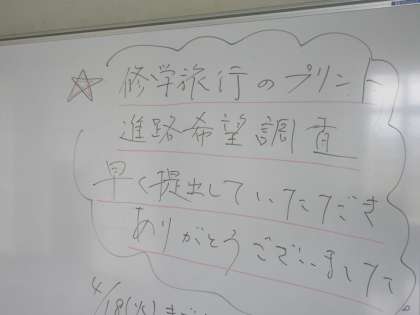 ☆修学旅行のプリント
進路希望調査
早く提出していただき
ありがとうございました
4/18(火)まで